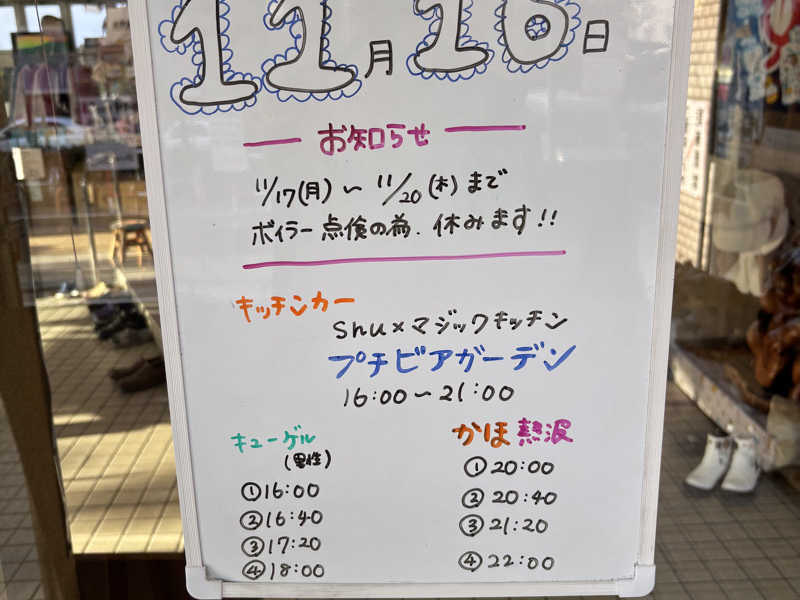 11月16日
お知らせ
11/17(月)～11/20(木)まで
ボイラー点検の為、休みます!!
キッチンカー
shu×マジックキッチン
プチビアガーデン
16:00～21:00
キューゲル
(男性)
①16:00
②16:40
③17:20
④18:00
かほ熱波
①20:00
②20:40
③21:20
④22:00